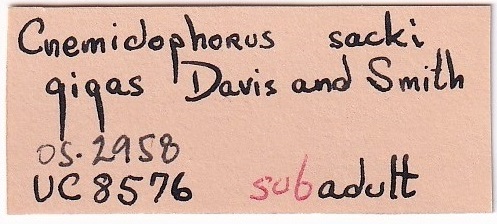 Cnemidophorus sacki
gigas Davis and Smith
OS. 2958
UC 8576 subadult